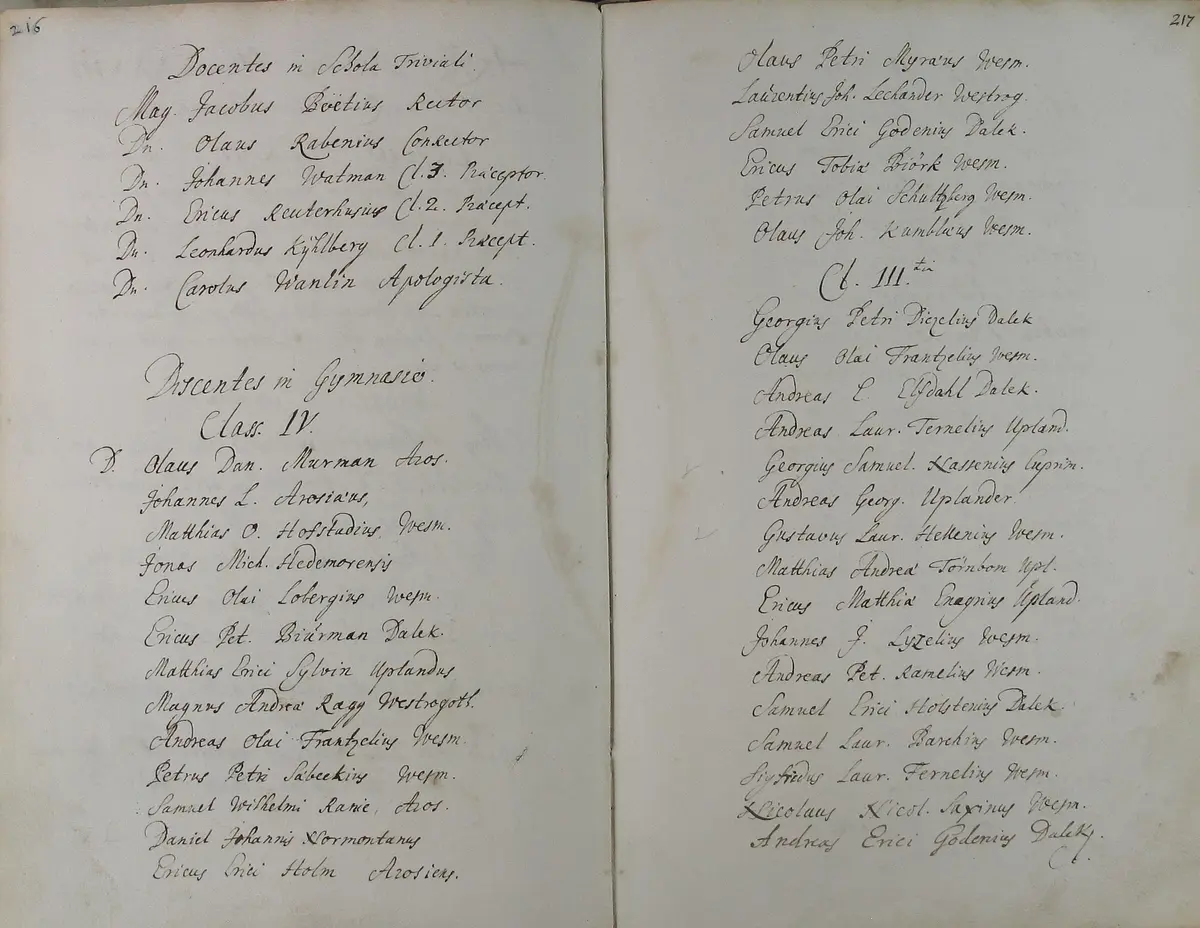 216
Docentes in Schola Triviali.
Mag. Jacobus Boëtius Rector
Dn. Olaus Rabenius Conrector
Dn. Johannes Watman Cl. 3. Præceptor.
Dn. Ericus Reuterhusius Cl. 2. Præcept.
Dn. Leonhardus Kÿhlberg Cl. 1. Præcept.
Dn. Carolus Wanlin Apologista.
Discentes in Gymnasio.
Class. IV.
D. Olaus Dan. Murman Aros.
Johannes L. Arosiæus,
Matthias O. Hofstadius, Wesm.
Jonas Mich. Hedemorensis
Ericus Olai Lobergius Wesm.
Ericus Pet. Biurman Dalek.
Matthias Erici Sylvin Uplandus
Magnus Andreæ Ragy Westrogoth.
Andreas Olai Frantzelius Wesm.
Petrus Petri Sabeckius Wesm.
Samuel Wilhelmi Ranie, Aros.
Daniel Johannis Normontanus
Ericus Erici Holm Arosiens.
217
Olaus Petri Myræus Wesm.
Laurentius Joh. Lechander Westrog.
Samuel Erici Godenius Dalek.
Ericus Tobiæ Biörk Wesm.
Petrus Olai Schultzberg Wesm.
Olaus Joh. Kumblæus Wesm.
Cl. III.tiæ
Georgius Petri Diezelius Dalek
Olaus Olai Frantzelius Wesm.
Andreas E. Elfdahl Dalek.
Andreas Laur. Fernelius Upland.
Georgius Samuel. Nassenius Cuprim.
Andreas Georg. Uplander
Gustavus Laur. Hellenius Wesm.
Matthias Andreæ Törnbom Upl.
Ericus Matthiæ Enagrius Upland.
Johannes J. Lyzelius Wesm.
Andreas Pet. Ramelius Wesm.
Samuel Erici Holstenius Dalek.
Samuel Laur. Barchius Wesm.
Sigfridus Laur. Fernelius Wesm.
Nicolaus Nicol. Saxinus Wesm.
Andreas Erici Godenius Dalek.